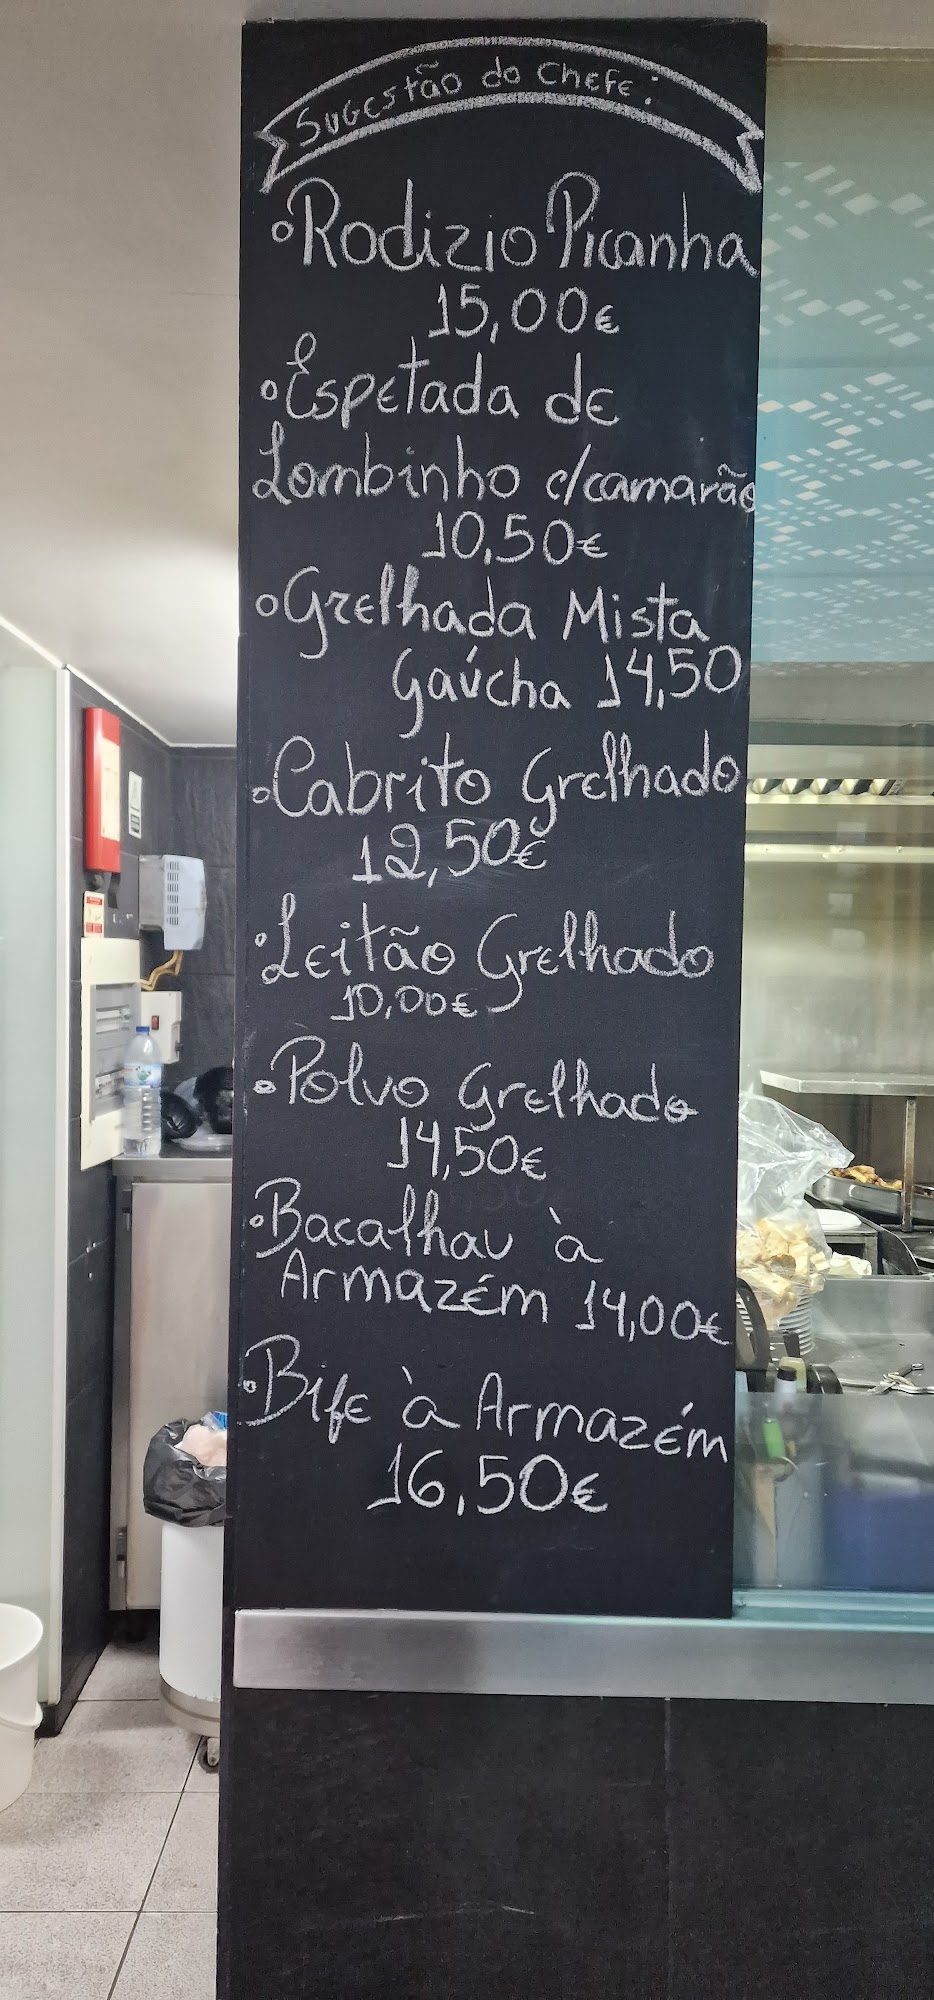 Sugestão do Chefe:
Rodizio Picanha
15,00€
Espetada de
Lombinho c/camarão
10,50€
Grelhada Mista
Gaúcha 14,50
Cabrito Grelhado
12,50€
Leitão Grelhado
10,00€
Polvo Grelhado
14,50€
Bacalhau à
Armazém 14,00€
Bife à Armazém
16,50€